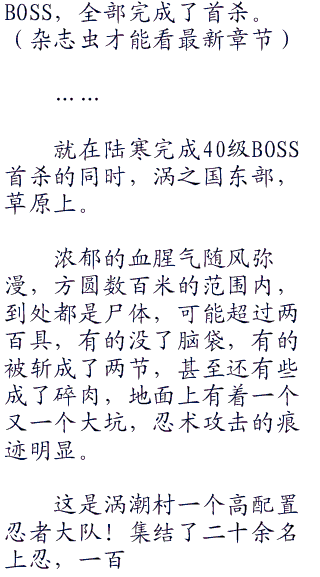 BOSS，全部完成了首杀。
（杂志虫才能看最新章节）
……
就在陆寒完成40级BOSS
首杀的同时，涡之国东部，
草原上。
浓郁的血腥气随风弥
漫，方圆数百米的范围内，
到处都是尸体，可能超过两
百具，有的没了脑袋，有的
被斩成了两节，甚至还有些
成了碎肉，地面上有着一个
又一个大坑，忍术攻击的痕
迹明显。
这是涡潮村一个高配置
忍者大队！集结了二十余名
上忍，一百